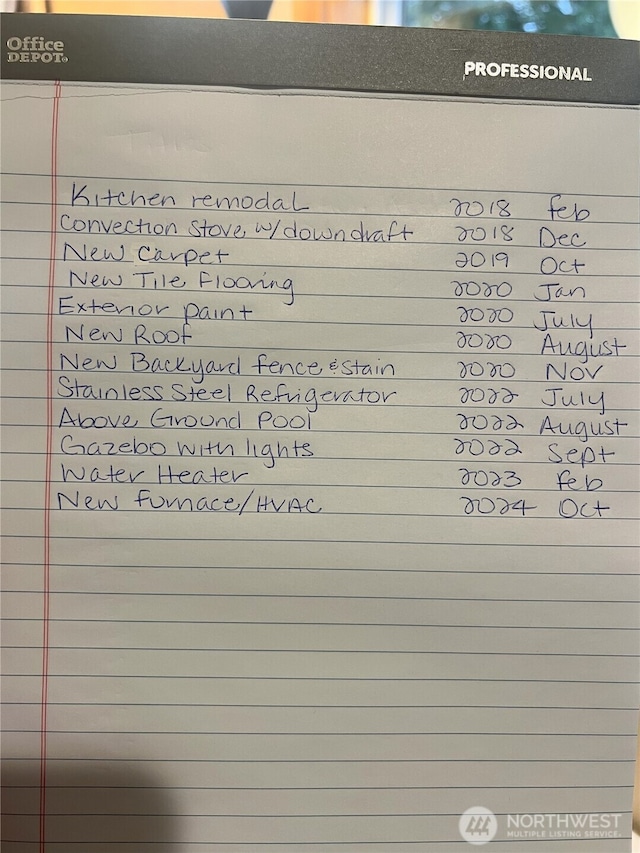 Office
DEPOT
PROFESSIONAL
Kitchen remodal 2018 feb
Convection Stove w/downdraft 2018 Dec
New Carpet 2019 Oct
New Tile Flooring 2020 Jan
Exterior paint 2020 July
New Roof 2020 August
New Backyard fence & stain 2020 Nov
Stainless Steel Refrigerator 2022 July
Above Ground Pool 2022 August
Gazebo with lights 2022 Sept
Water Heater 2023 feb
New furnace/HVAC 2024 Oct
NORTHWEST
MULTIPLE LISTING SERVICE